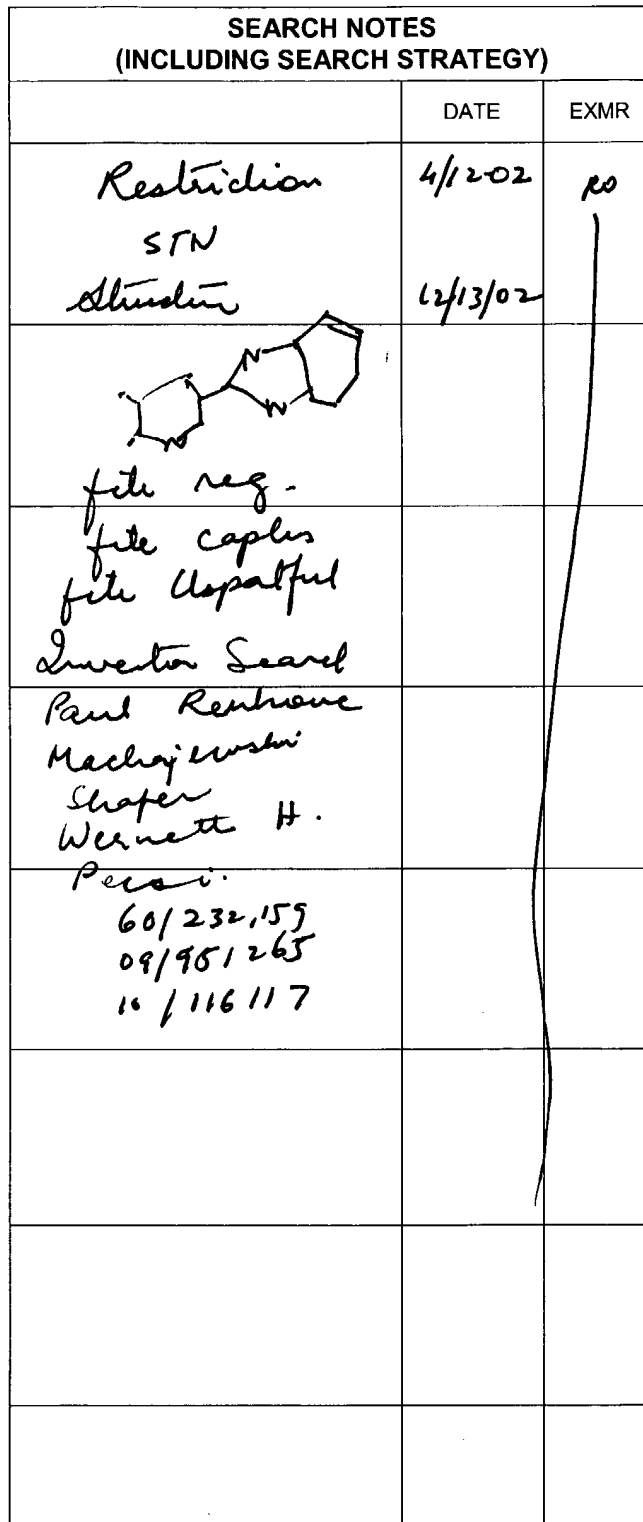 SEARCH NOTES
(INCLUDING SEARCH STRATEGY)
DATE EXMR
Restriction 4/12-02 RO
STN
Structure 12/13/02
N
N
N
file reg.
file caplus
file Uspatful
Inventor Search
Paul Renhowe
Machajewski
Shafer
Wernette H.
60/232,159
09/951265
10/116117